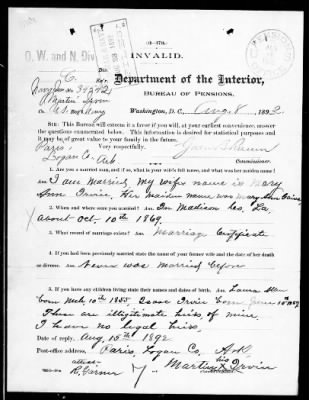 (3-374.)
INVALID.
O. W. and N. Div.
C.
No. 34242
Martin Irvin
U.S. Navy
Department of the Interior,
BUREAU OF PENSIONS,
Washington, D. C., Aug. 8, 1892
Sir: This Bureau will esteem it a favor if you will, at your earliest convenience, answer
the questions enumerated below. This information is desired for statistical purposes and
it may be of great value to your family in the future.
Very respectfully,
Paris,
Logan Co,
Ark
Green B. Raum
Commissioner.
1. Are you a married man, and if so, what is your wife's full name, and what was her maiden name?
I am Married, My wife's name is Mary
Ann Irvin, Her Maiden name was Mary Ann
2. When and where were you married? Ans. In Madison Co, La,
about Oct 10th 1869.
3. What record of marriage exists? Marriage Certificate
4. If you had been previously married state the name of your former wife and the date of her death
or divorce. Ans. Never was married before
5. If you have any children living state their names and dates of birth. Ans. Laura
born Mch 10th 1855, Isaac Irvin born June
These are illigitimate heirs of mine.
I have no legal heirs,
Date of reply, Aug, 15th 1892
Post-office address, Paris, Logan Co, Ark
attest
R. Garner
Martin his X Irvin